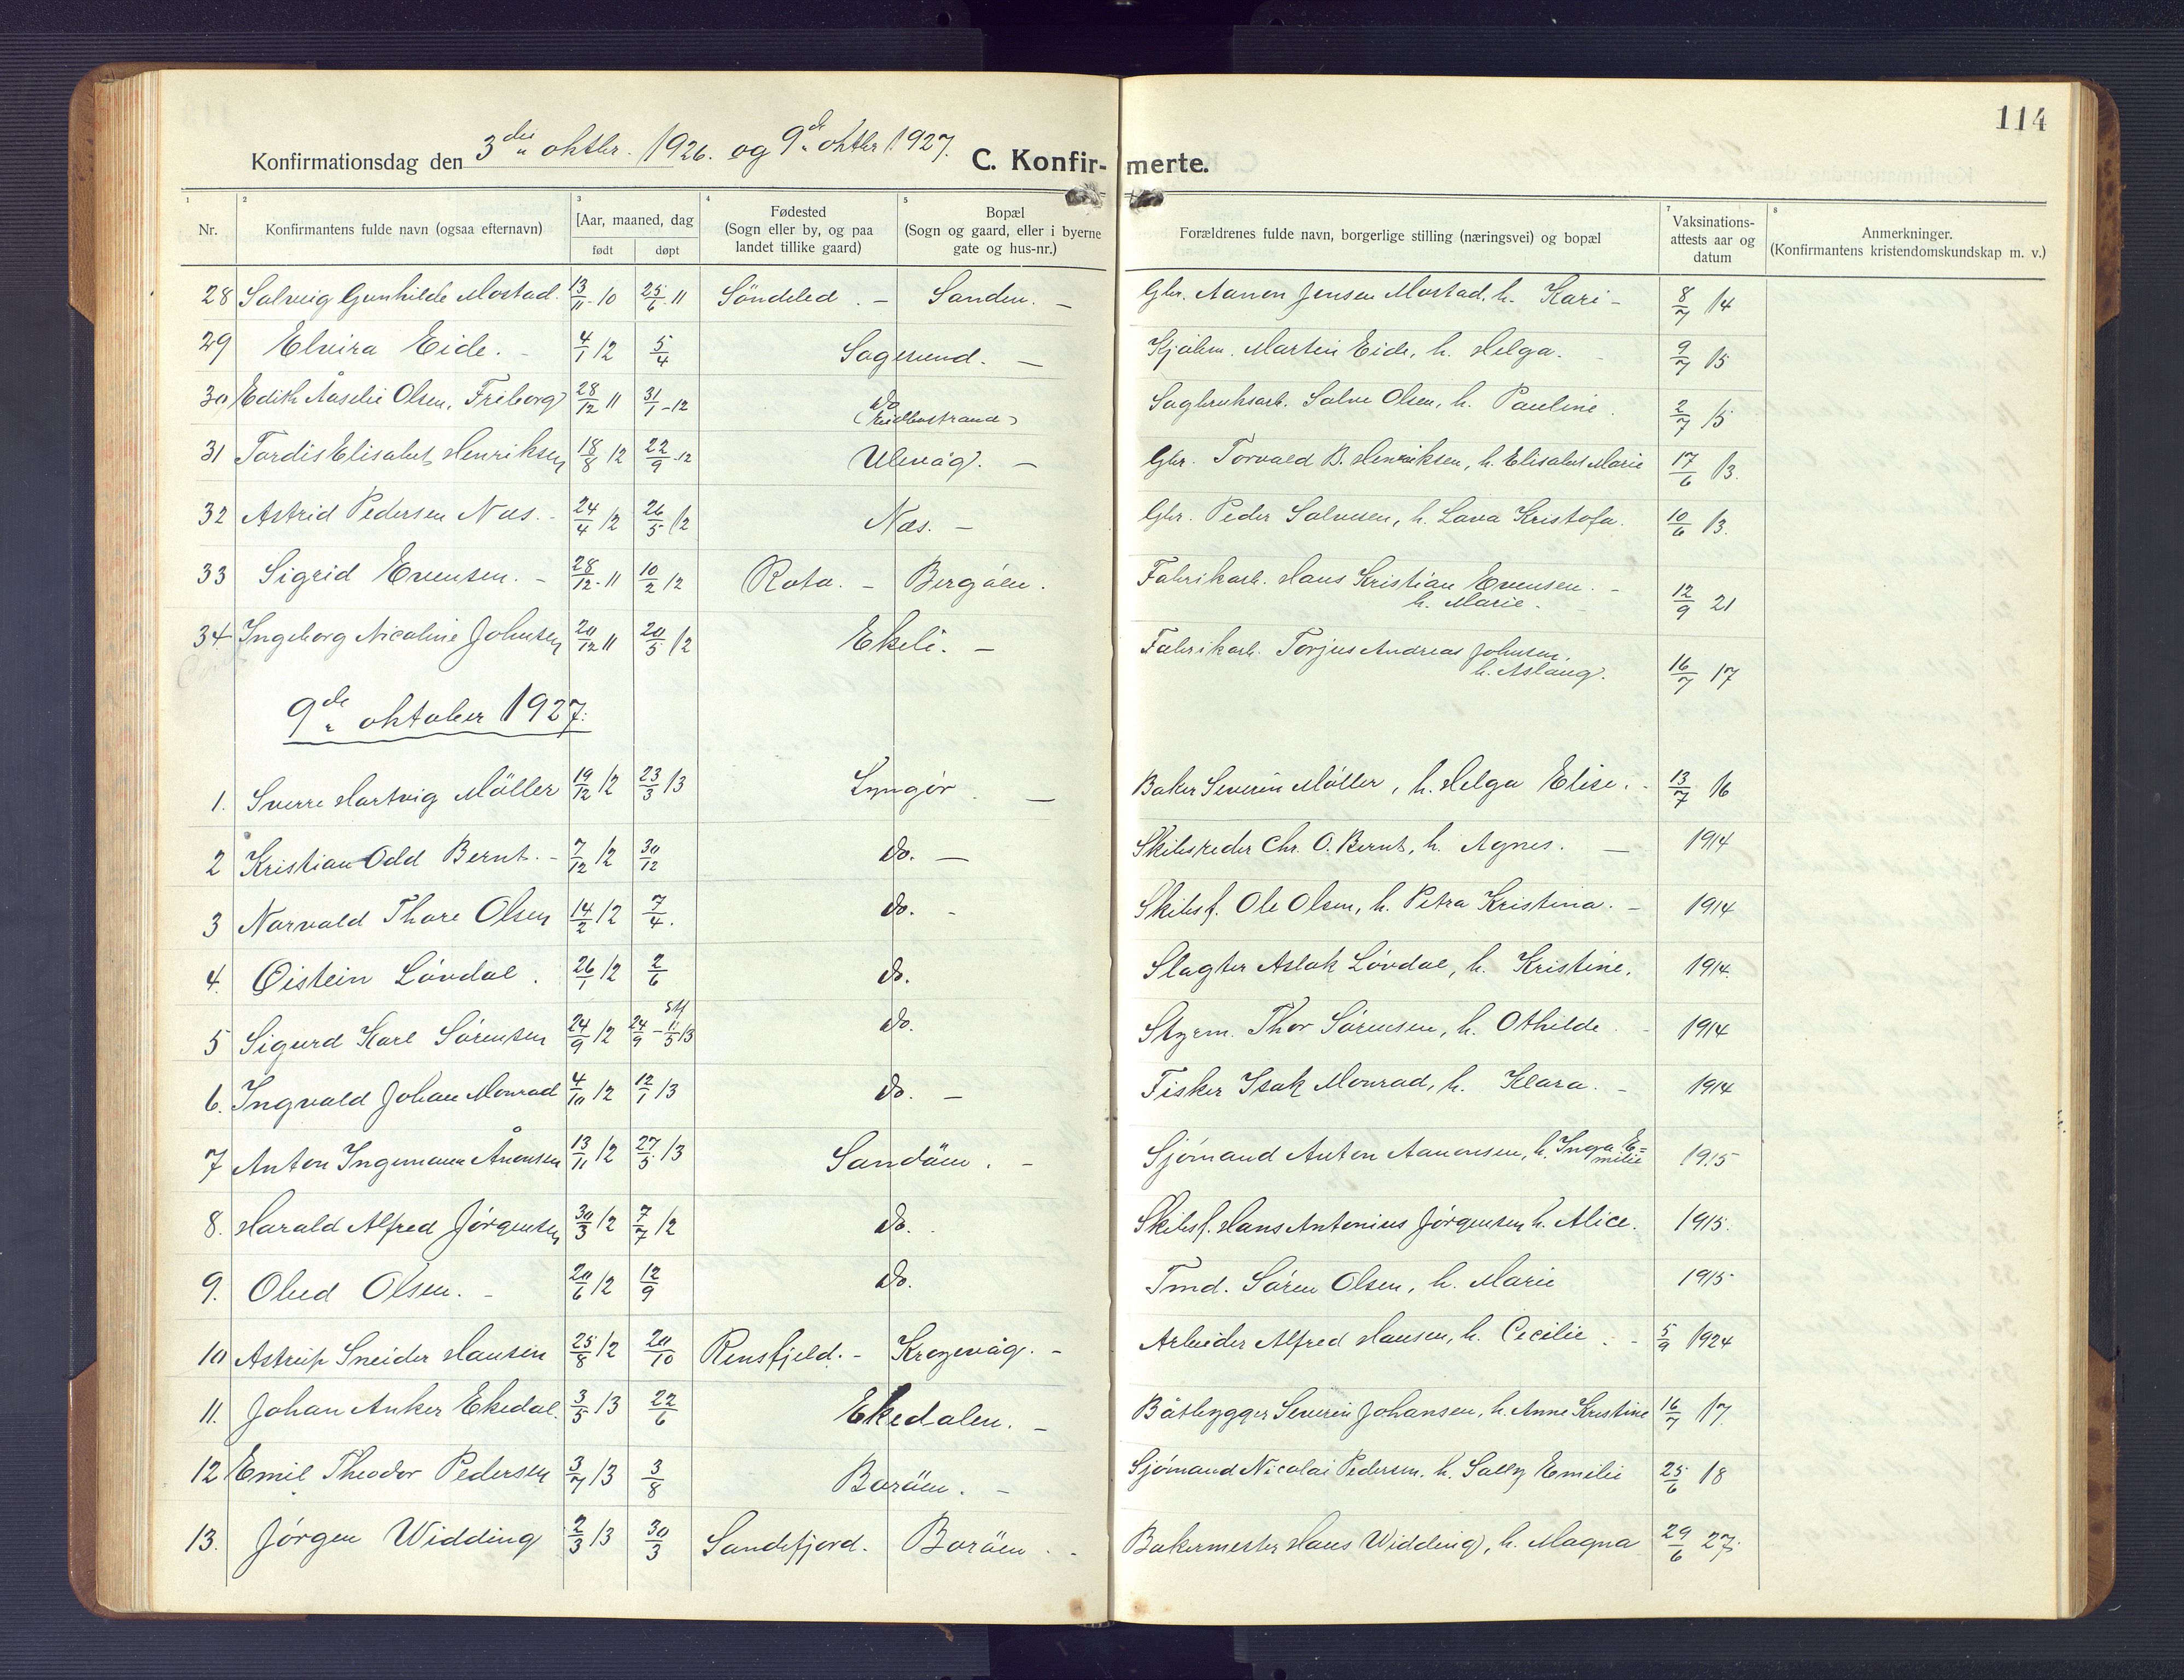 114
Konfirmationsdag den 3die oktbr. 1926. og 9de oktbr 1927.
C. Konfir- merte.
1 2 3 4 5 7 8
Nr. Konfirmantens fulde navn (ogsaa efternavn) [Aar, maaned, dag født døpt Fødested (Sogn eller by, og paa landet tillike gaard) Bopæl (Sogn og gaard, eller i byerne gate og hus-nr.) Forældrenes fulde navn, borgerlige stilling (næringsvei) og bopæl Vaksinations-attests aar og datum Anmerkninger. (Konfirmantens kristendomskundskap m. v.)
28 Solveig Gunhilde Mostad. 13/11-10 25/6-11 Söndeled. - Sanden. - Gbr. Aanon Jensen Mostad, h. Kari - 8/7 14
29 Elvira Eide. - 4/1 12 5/4 Sagesund. - Martin Eide, h. Helga. - 9/7 15
30 Edith Åselie Olsen, Friborg 28/12 11 31/1-12 do Sagbruksarb. Salve Olsen, h. Pauline. 2/7 15
31 Tordis Elisabet Henriksen 18/8 12 22/9-12 Ulevåg. - Gbr. Torvald B. Henriksen, h. Elisabet Marie 17/6 13.
32 Astrid Pedersen Næs. - 24/4 12 26/5 12 Næs. - Gbr. Peder Salvesen, h. Lava Kristofa. 10/6 13.
33 Sigrid Evensen. - 28/12-11 10/2 12 Rota. - Bergöen. Fabrikarb. Hans Kristian Evensen. - h. Marie. 12/9 21
34 Ingeborg Nicoline Johnsen 20/12 11 20/5 12 Ekeli. - Fabrikarb. Torjus Andreas Johnsen, h. Aslaug. 16/7 17
9de oktober 1927.
1. Sverre Hartvig Möller 19/12 12 23/3 13 Lyngör. - Baker Severin Möller, h. Helga Elise. - 13/7 16
2 Kristian Odd Bernt. - 7/12 12 30/12 do. - Skibsreder Chr. O. Bernt, h. Agnes. - 1914
3 Norvald Thore Olsen 14/2 12 7/4. do. - Skibsf. Ole Olsen, h. Petra Kristina. - 1914
4. Øistein Lövdal. 26/1 12 2/6 do. Slagter Aslak Lövdal, h. Kristine. 1914.
5 Sigurd Karl Sörensen 24/9 12 24/9 - 11/5 13 do. Styrm. Thor Sörensen, h. Othilde. - 1914
6. Ingvald Johan Monrad 4/10 12 12/1 13 do. - Fisker Isak Monrad, h. Klara. - 1914
7 Anton Ingemann Ånonsen 13/11 12 27/5 13 Sandöen. - Sjömand Anton Aanonsen, h. Inga E=milie 1915
8. Harald Alfred Jörgensen 30/3 12 7/7 12 do. Skibsf. Hans Antonius Jörgensen h. Alice. 1915.
9. Obed Olsen. - 20/6 12 12/9 do. Tmd. Sören Olsen, h. Marie 1915
10 Astrup Sneider Hansen 25/8 12 20/10 Rensfjeld. - Krogevåg. - Arbeider Alfred Hansen, h. Cecilie. - 5/9 1924
11. Johan Anker Ekedal. 3/5 13 22/6 Ekedalen. - Båtbygger Severin Johansen, h. Anne Kristine 16/7 17.
12 Emil Theodor Pedersen 3/7 13 3/8 Boröen. - Sjömand Nicolai Pedersen. h. Sally Emilie 25/6 18
13. Jörgen Widding 2/3 13 30/3 Sandefjord. Boröen. - Bakermester Hans Widding, h. Magna 29/6 27.